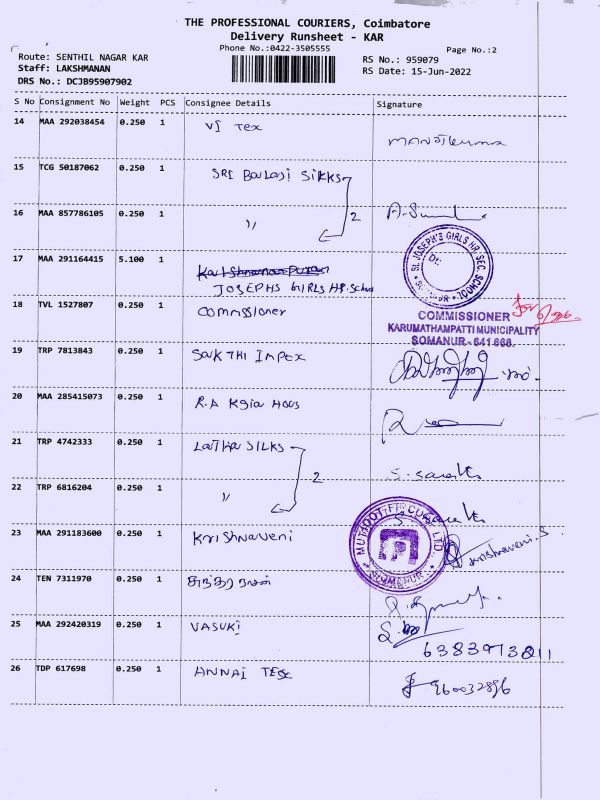 THE PROFESSIONAL COURIERS, Coimbatore
Delivery Runsheet - KAR
Phone No.:0422-3505555
Page No.:2
Route: SENTHIL NAGAR KAR
RS No.: 959079
Staff: LAKSHMANAN
RS Date: 15-Jun-2022
DRS No.: DCJB95907902
S No Consignment No Weight PCS Consignee Details Signature
14 MAA 292038454 0.250 1 VJ Tex
15 TCG 50187062 0.250 1 SRI Balaji Silks
16 MAA 857786105 0.250 1 〃 2
17 MAA 291164415 5.100 1
JOSEPHS GIRLS HR.School
ST. JOSEPH'S GIRLS HR. SEC. SCHOOL
Dt:
SOMANUR
18 TVL 1527807 0.250 1 Commissioner
COMMISSIONER
KARUMATHAMPATTI MUNICIPALITY
SOMANUR - 641 668.
19 TRP 7813843 0.250 1 SAKTHI IMPEX
20 MAA 285415073 0.250 1 R.A
21 TRP 4742333 0.250 1 Latha SILKS
22 TRP 6816204 0.250 1 〃 2
MUTHOOT FINCORP LTD.
SOMANUR
23 MAA 291183600 0.250 1 Krishnaveni Krishnaveni.S
24 TEN 7311970 0.250 1
25 MAA 292420319 0.250 1 VASUKi
6383973811
26 TDP 617698 0.250 1 ANNAI TEX
960032896